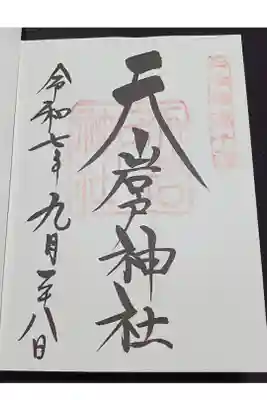 天岩戸神社
令和七年九月二十八日